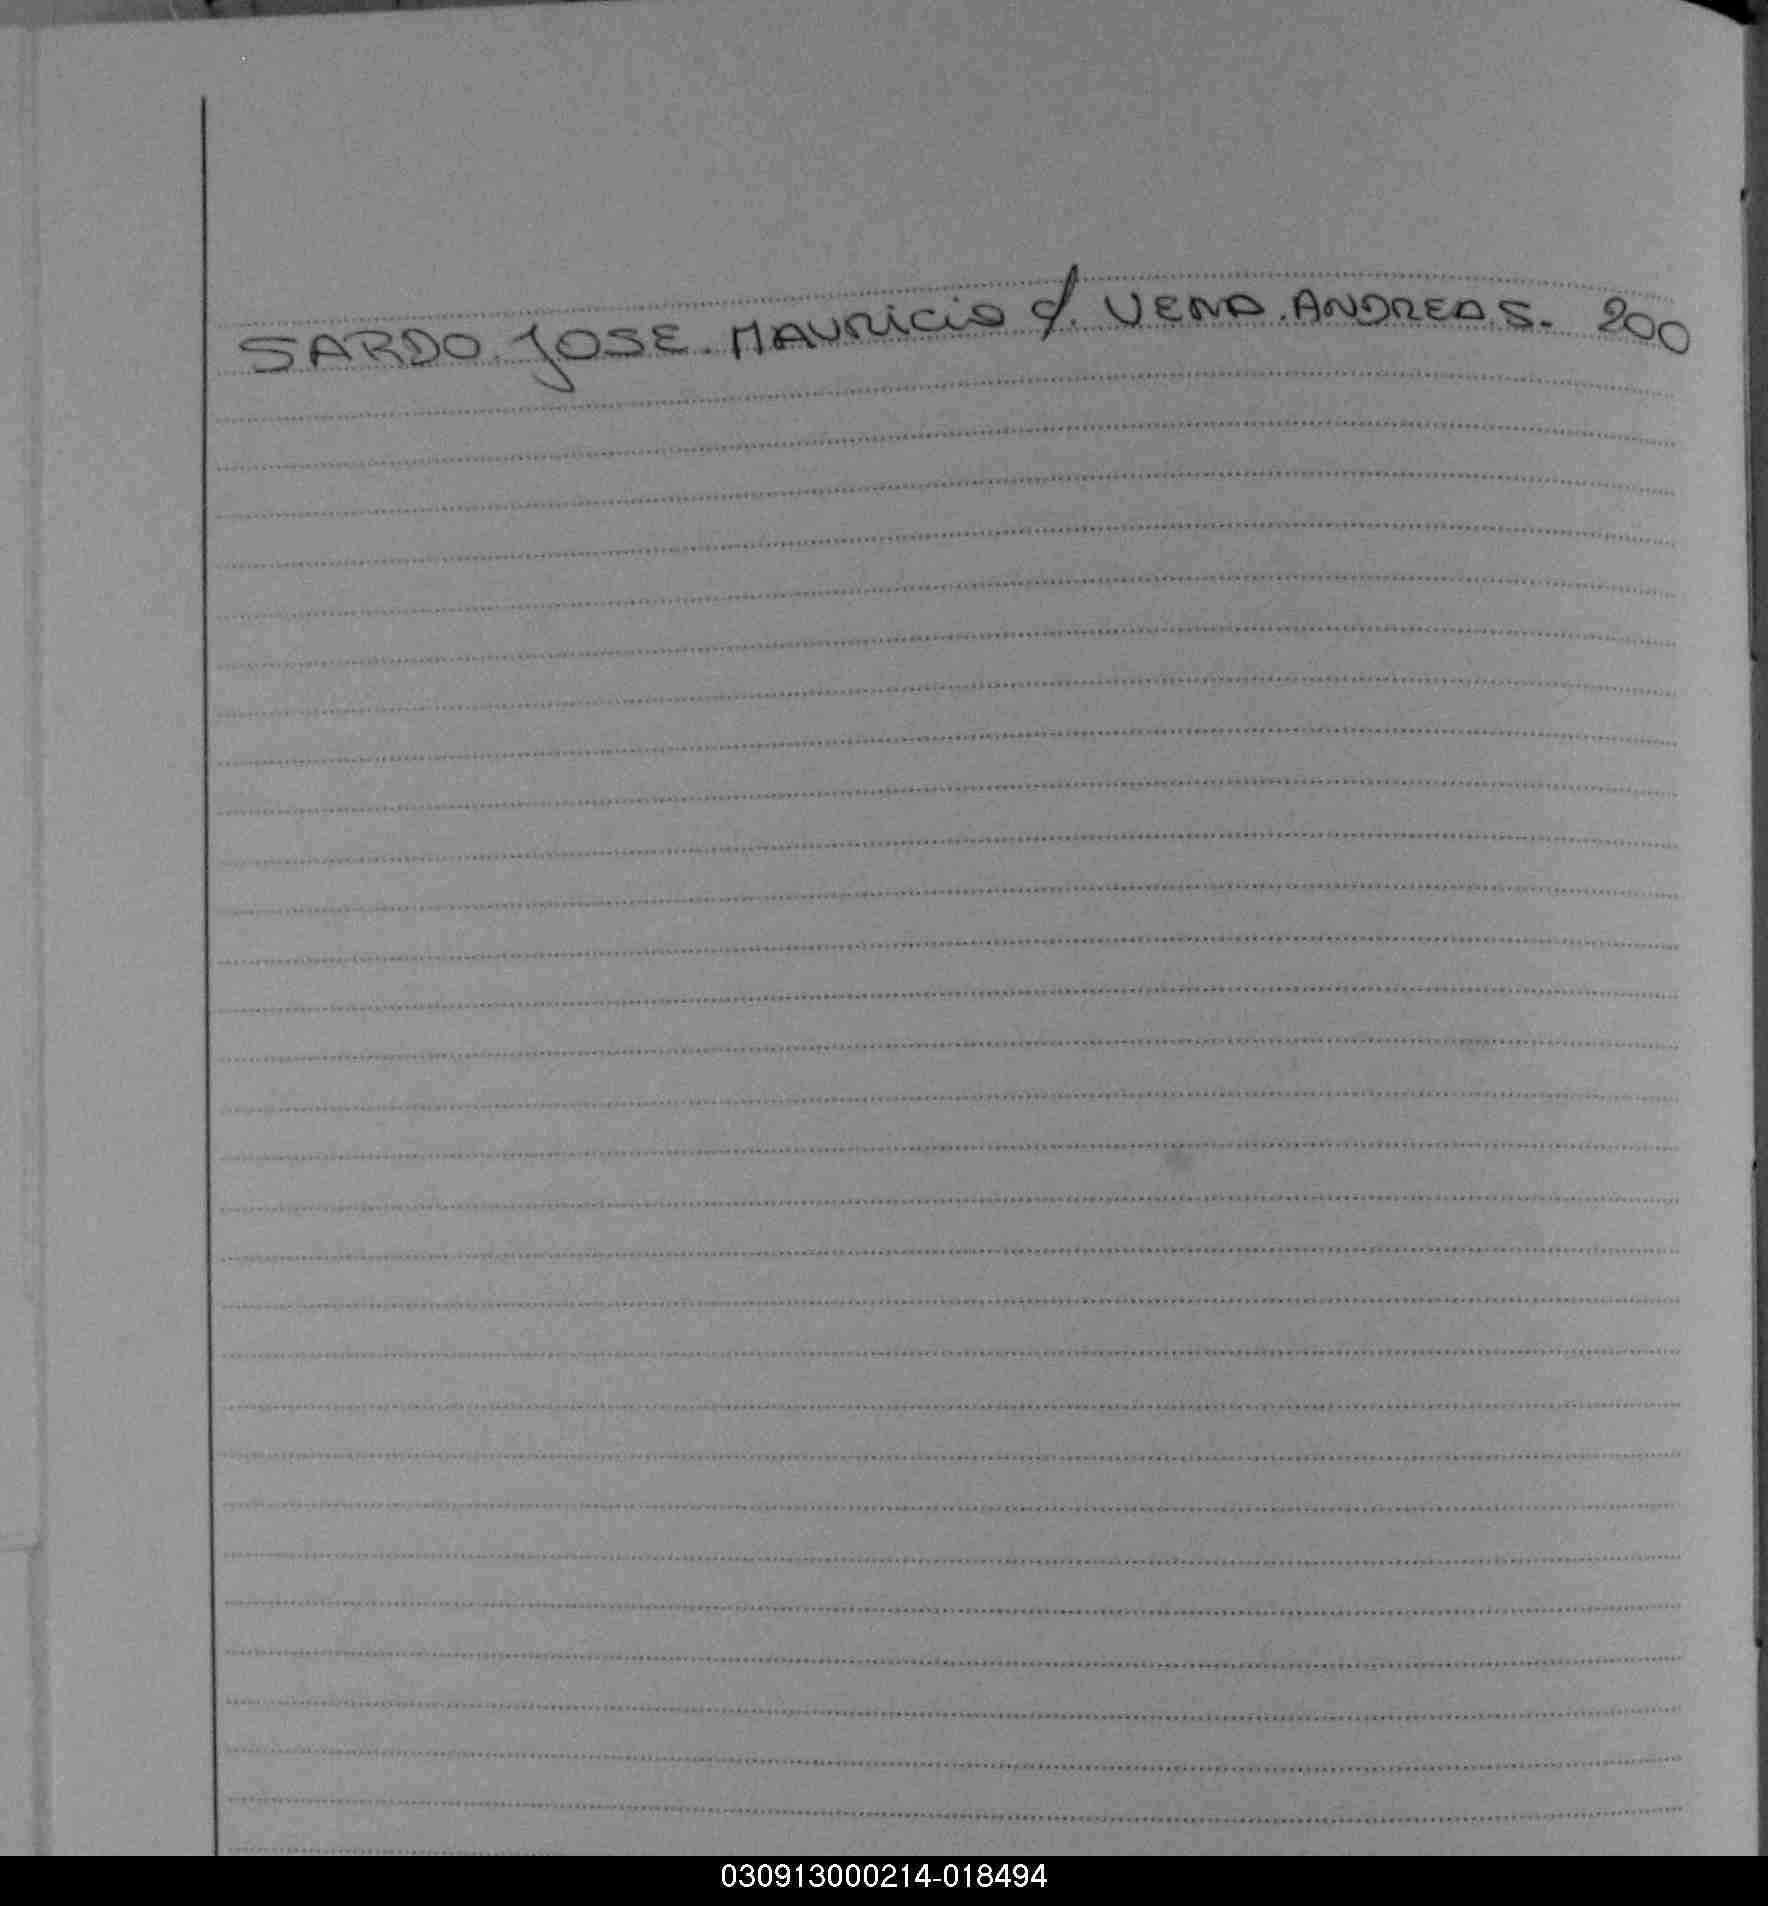 SARDO JOSE MAURICIO c/. VERA ANDREA S. 200
030913000214-018494